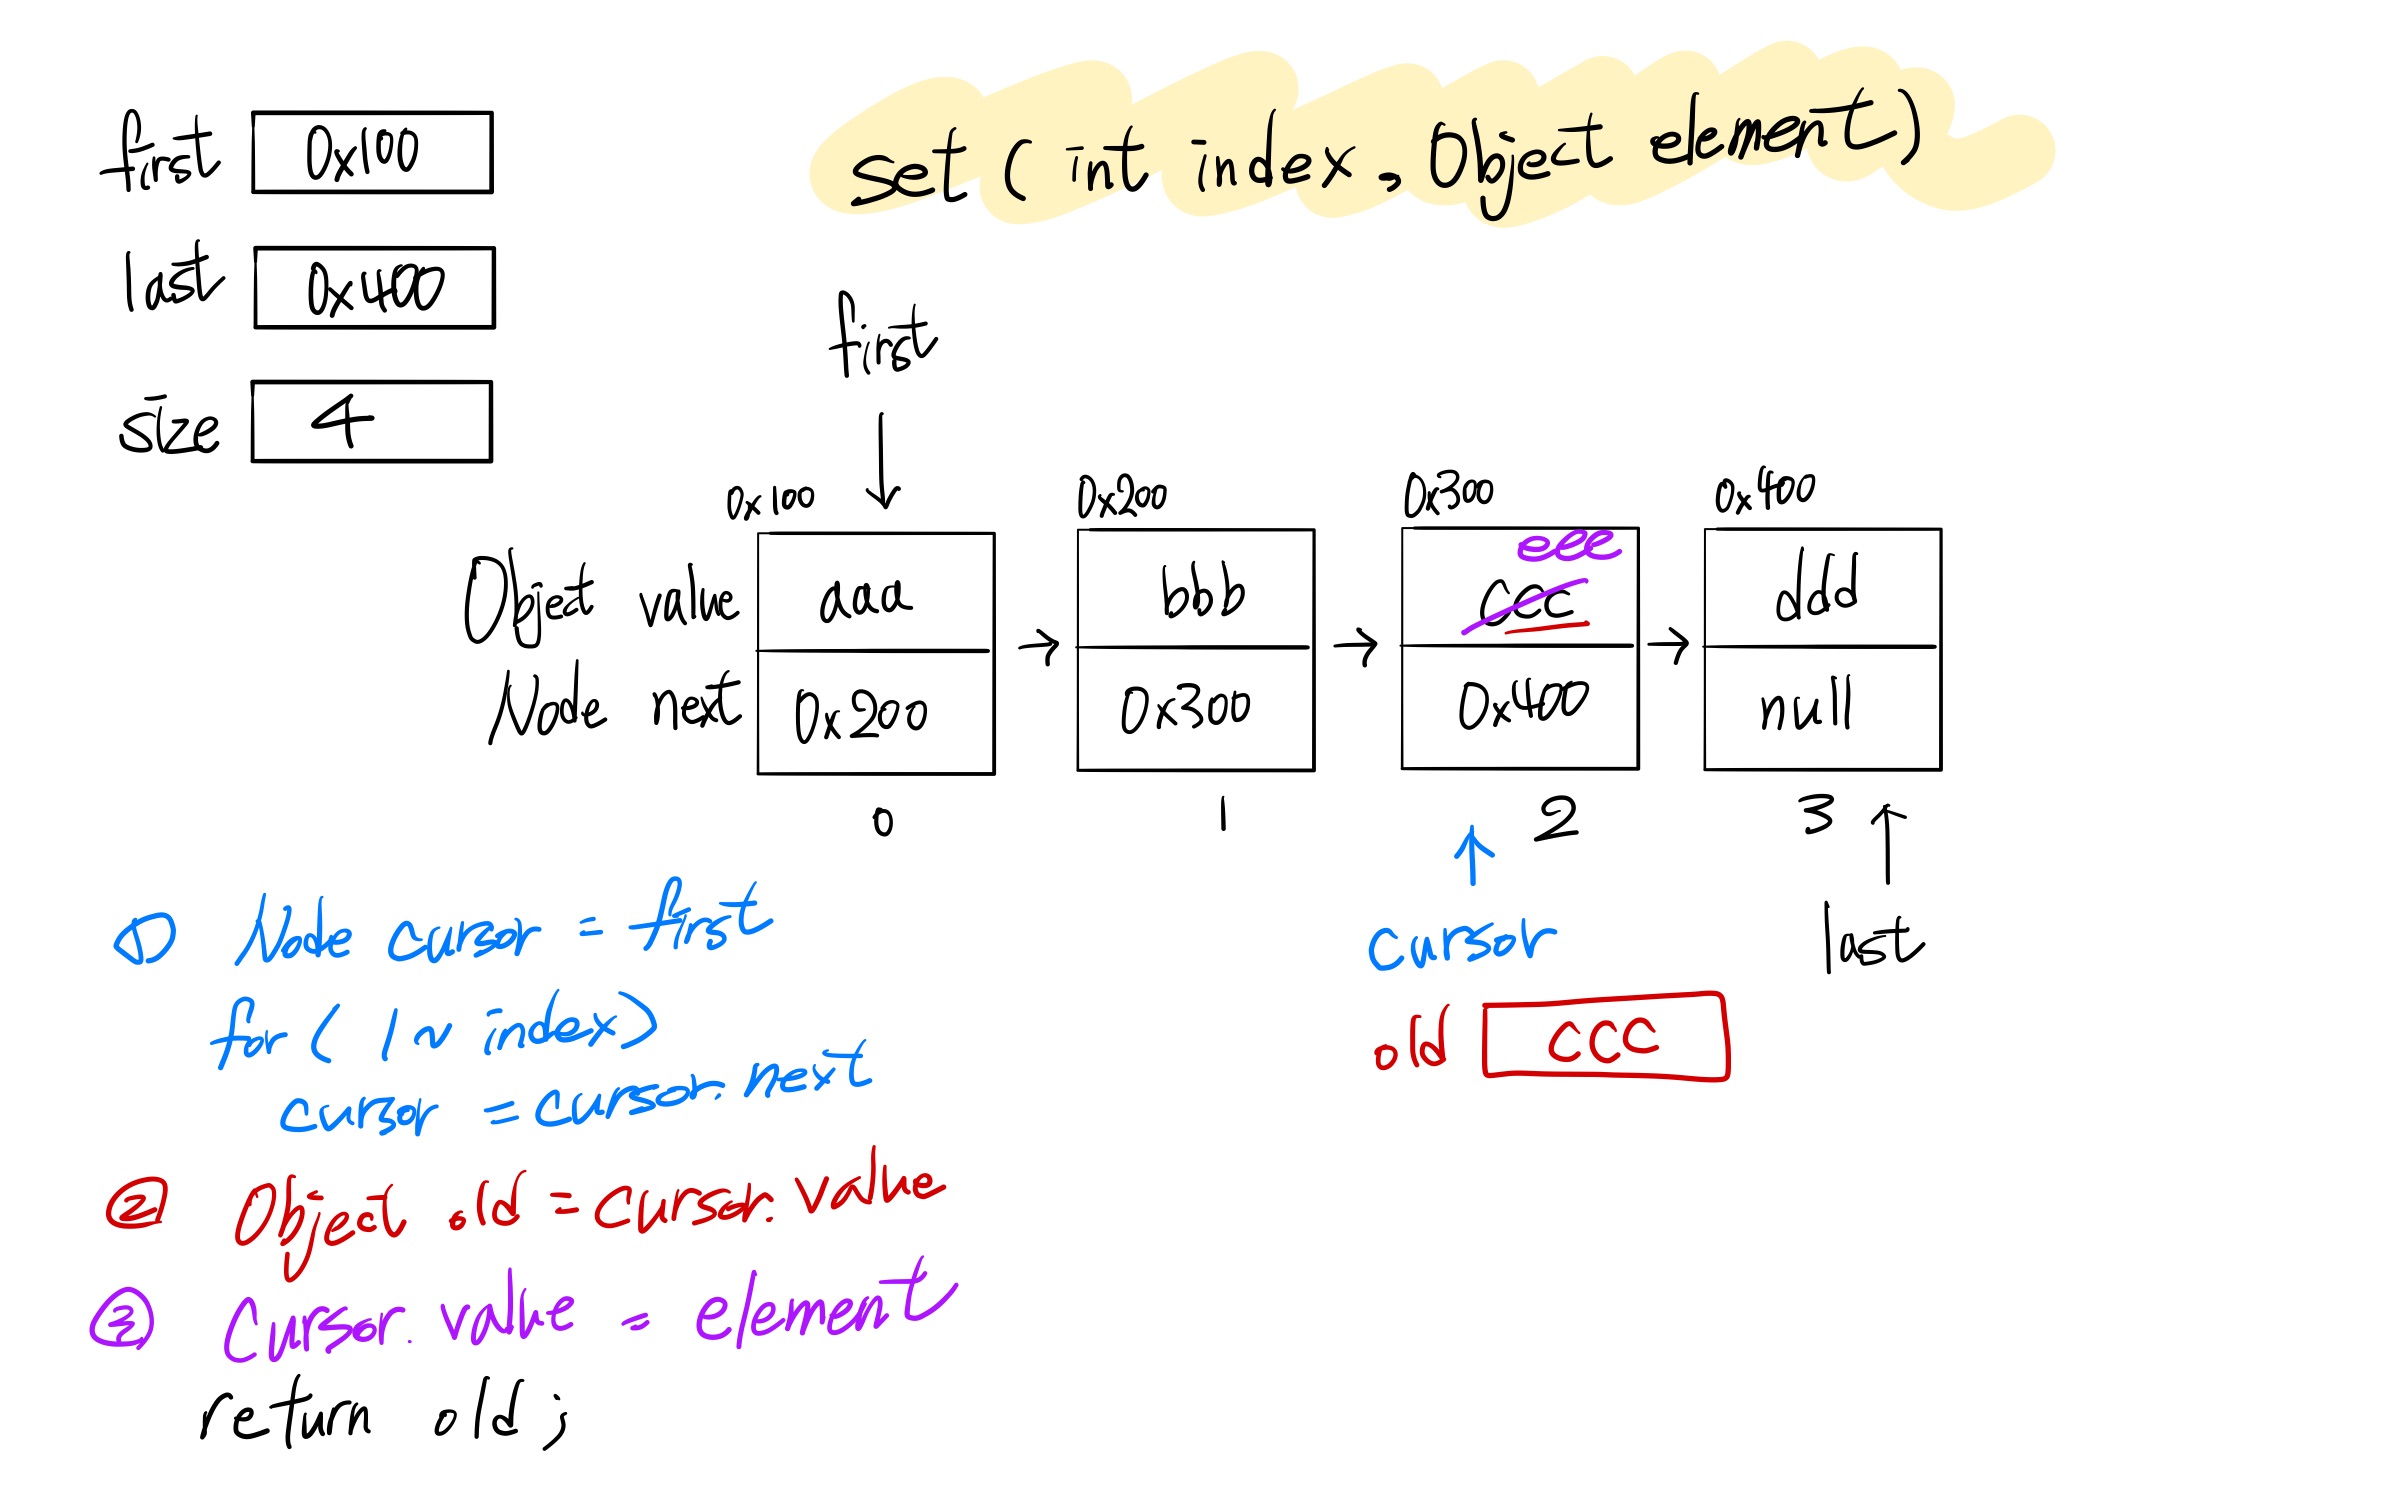 first 0x100
set ( int index, Object element )
last 0x400
first
size 4
0x100 0x200 0x300 0x400
eee
Object value aaa bbb ccc ddd
Node next 0x200 0x300 0x400 null
0 1 2 3
① Node cursor = first
cursor
last
for ( 1 ~ index )
old ccc
cursor = cursor.next
② Object old = cursor.value
③ Cursor.value = element
return old ;